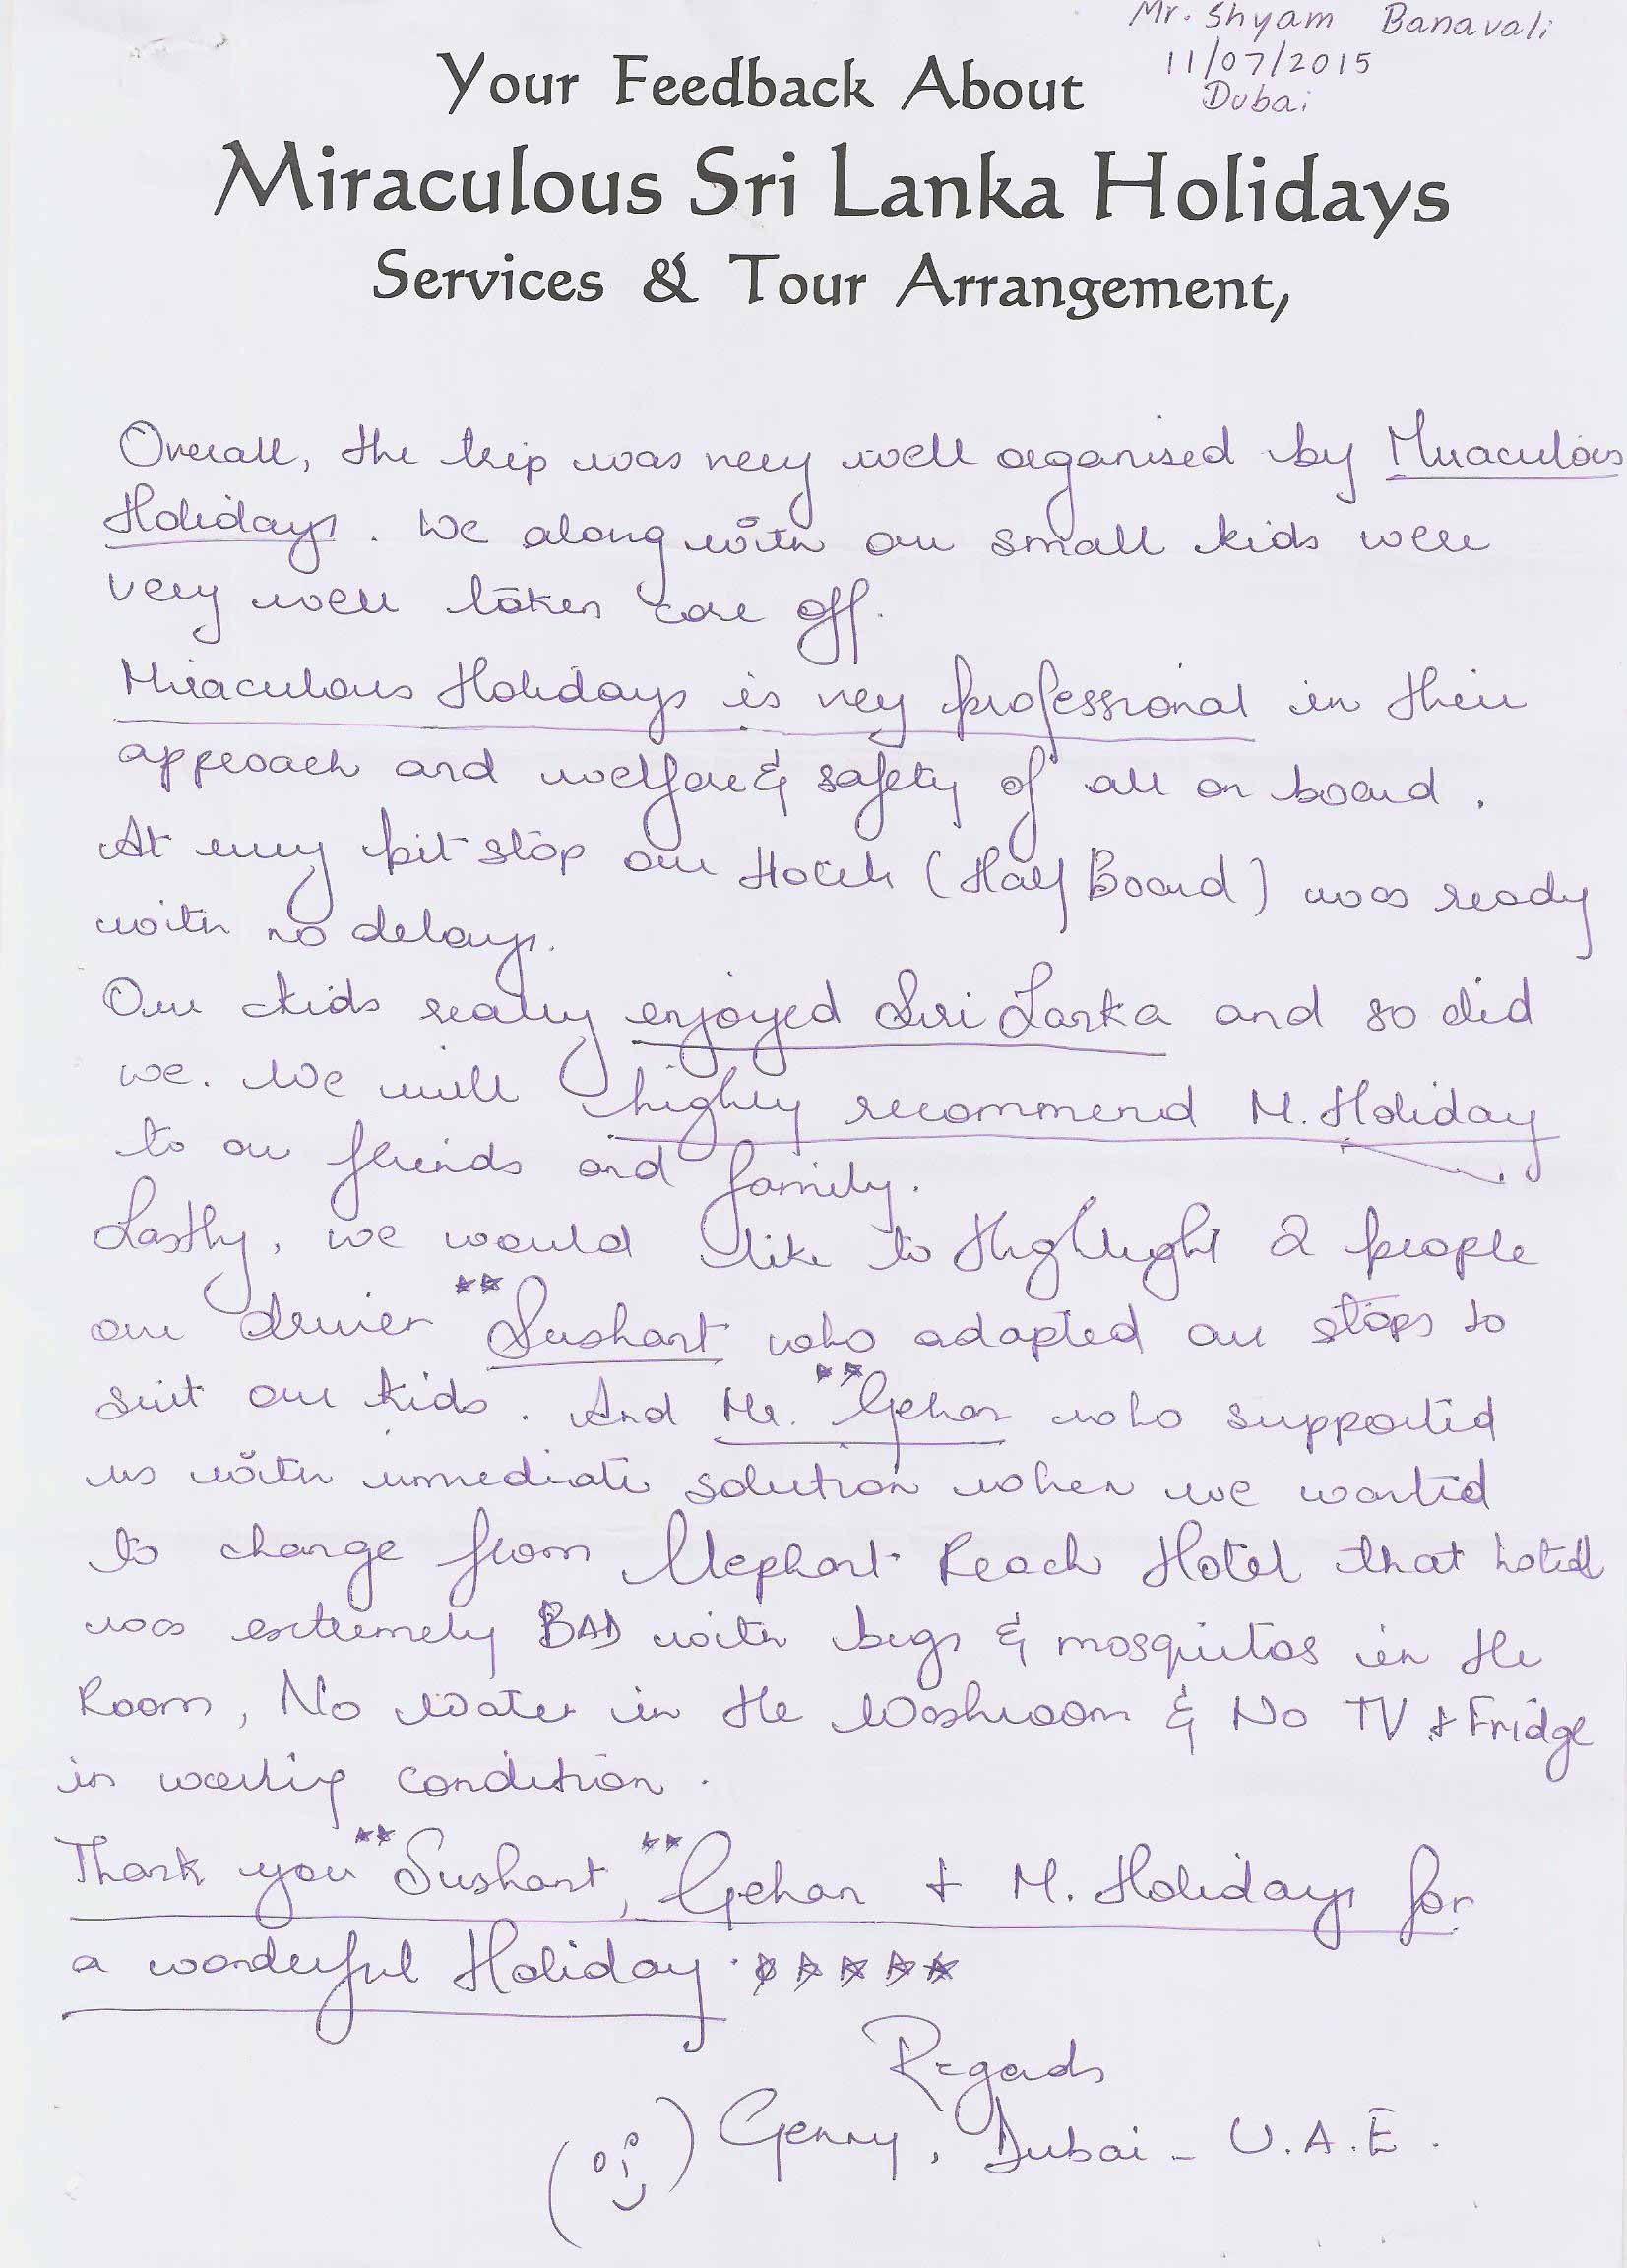 Mr. Shyam Banavali
11/07/2015
Dubai
Your Feedback About
Miraculous Sri Lanka Holidays
Services & Tour Arrangement,
Overall, the trip was very well organised by Miraculous
Holidays. We along with our small kids were
very well taken care off.
Miraculous Holidays is very professional in their
approach and welfare & safety of all on board.
At every pit stop our Hotels (Half Board) was ready
with no delays.
Our kids really enjoyed Sri Lanka and so did
we. We will highly recommend M. Holiday
to our friends and family.
Lastly, we would like to Highlight 2 people
our driver **Sushant who adapted our stops to
suit our kids. And Mr. **Gehan who supported
us with immediate solution when we wanted
to change from Elephant Reach Hotel that hotel
was extremely BAD with bugs & mosquitos in the
Room, No Water in the Washroom & No TV + Fridge
in working condition.
Thank you **Sushant, **Gehan + M. Holidays for
a wonderful Holiday. *****
Regards
Genny, Dubai - U.A.E.